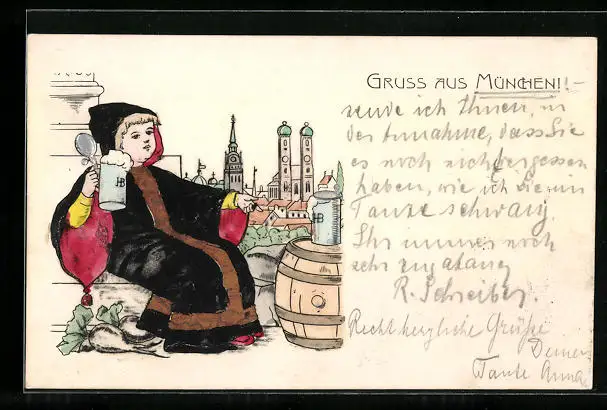 GRUSS AUS MÜNCHEN! ! -
sende ich Ihnen, in
der Annahme, dass Sie
es noch nicht vergessen
haben, wie ich Sie im
Tanze schwang.
Ihr immer noch
sehr
R. Schreiber.
Recht herzliche Grüße
Deiner
Tante Anna
HB
HB